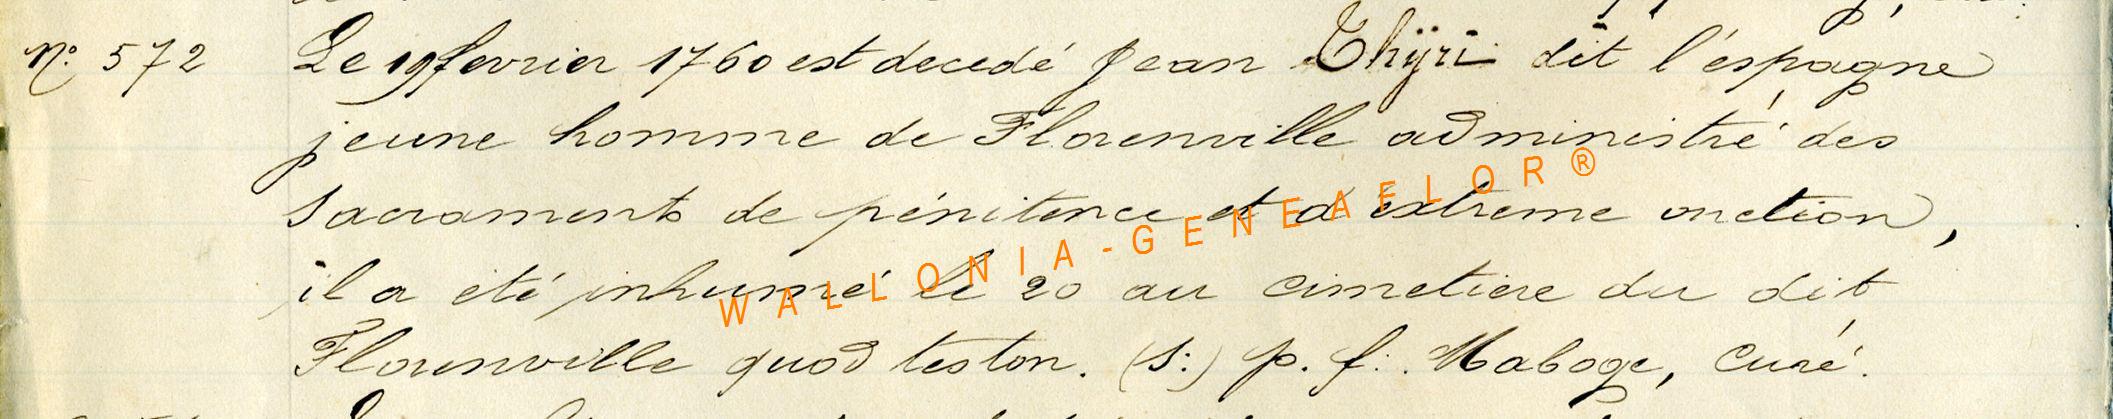 N° 572 Le 19 fevrier 1760 est decedé Jean Thÿri dit l'éspagne
jeune homme de Florenville administré des
Sacraments de pénitence et d'extreme onction,
il a eté inhumé le 20 au cimetiere du dit
Florenville quod testor. (S:) p. f. Maboge, Curé.
WALLONIA-GENEAFLOR®